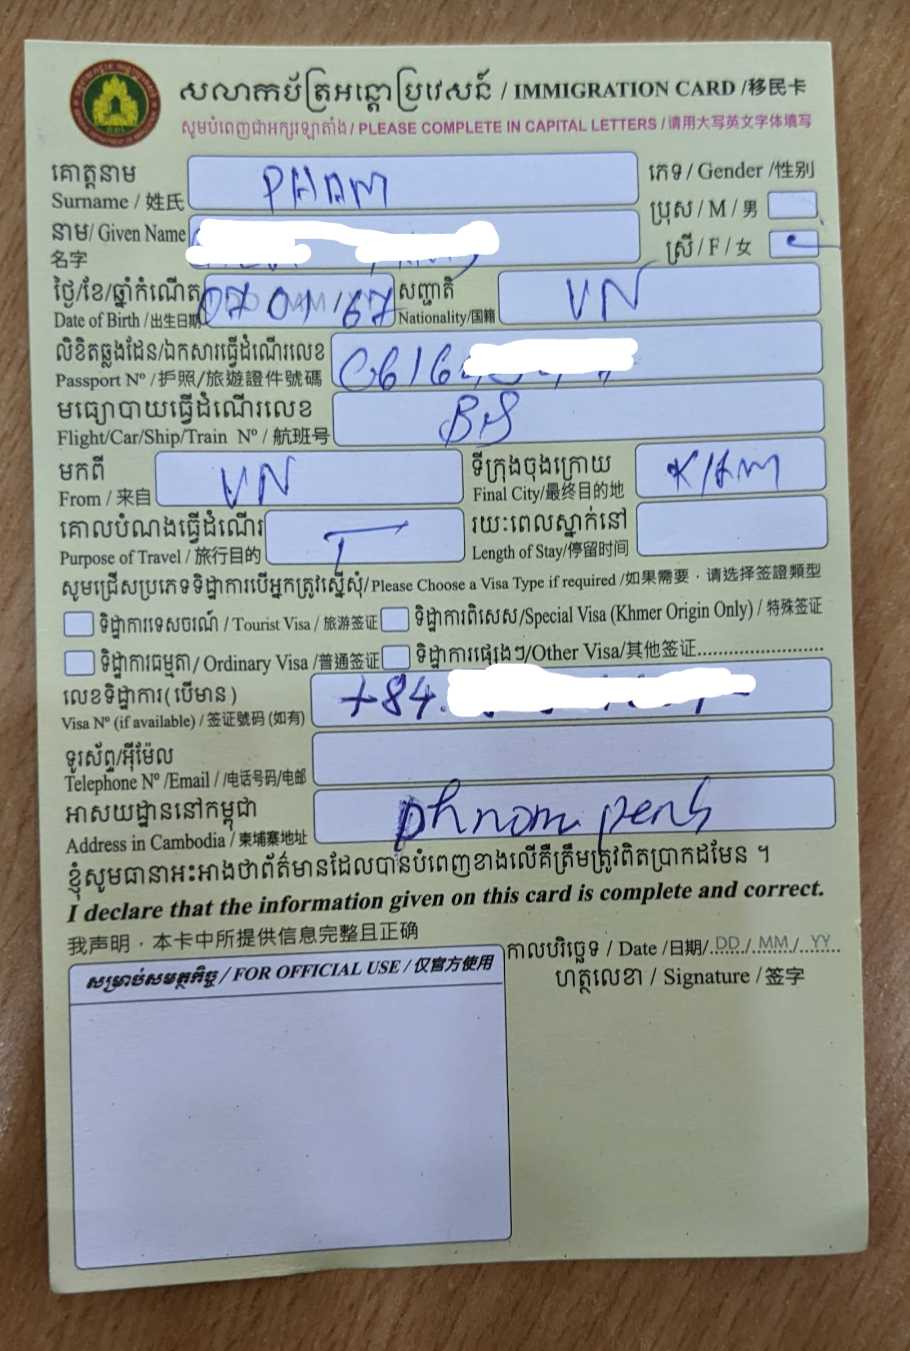 សលាកប័ត្រអន្តោប្រវេសន៍ / IMMIGRATION CARD /移民卡
សូមបំពេញជាអក្សរឡាតាំង/ PLEASE COMPLETE IN CAPITAL LETTERS /请用大写英文字体填写
គោត្តនាម
Surname / 姓氏 PHAM
ភេទ / Gender /性别
ប្រុស / M / 男
ស្រី / F / 女
នាម/ Given Name
名字
ថ្ងៃ/ខែ/ឆ្នាំកំណើត
Date of Birth /出生日期 07 / 01 / 67
សញ្ជាតិ
Nationality/国籍 VN
លិខិតឆ្លងដែន/ឯកសារធ្វើដំណើរលេខ
Passport Nº /护照/旅遊證件號碼 C616
មធ្យោបាយធ្វើដំណើរលេខ
Flight/Car/Ship/Train Nº / 航班号 BS
មកពី
From / 来自 VN
ទីក្រុងចុងក្រោយ
Final City/最终目的地 KHAM
គោលបំណងធ្វើដំណើរ
Purpose of Travel / 旅行目的 T
រយៈពេលស្នាក់នៅ
Length of Stay/停留时间
សូមជ្រើសប្រភេទទិដ្ឋាការបើអ្នកត្រូវស្នើសុំ/Please Choose a Visa Type if required /如果需要﹐请选择签證類型
ទិដ្ឋាការទេសចរណ៍ / Tourist Visa / 旅游签证
ទិដ្ឋាការពិសេស/Special Visa (Khmer Origin Only) / 特殊签证
ទិដ្ឋាការធម្មតា/ Ordinary Visa /普通签证
ទិដ្ឋាការផ្សេងៗ/Other Visa/其他签证........................
លេខទិដ្ឋាការ (បើមាន)
Visa Nº (if available) / 签证號码 (如有) +84.
ទូរស័ព្ទ/អ៊ីម៉ែល
Telephone Nº /Email / /电话号码/电邮
អាសយដ្ឋាននៅកម្ពុជា
Address in Cambodia / 柬埔寨地址 phnom penh
ខ្ញុំសូមធានាអះអាងថាព័ត៌មានដែលបានបំពេញខាងលើគឺត្រឹមត្រូវពិតប្រាកដមែន ។
I declare that the information given on this card is complete and correct.
我声明﹐本卡中所提供信息完整且正确
កាលបរិច្ឆេទ / Date /日期/ DD / MM / YY
ហត្ថលេខា / Signature / 签字
សម្រាប់សមត្ថកិច្ច / FOR OFFICIAL USE / 仅官方使用